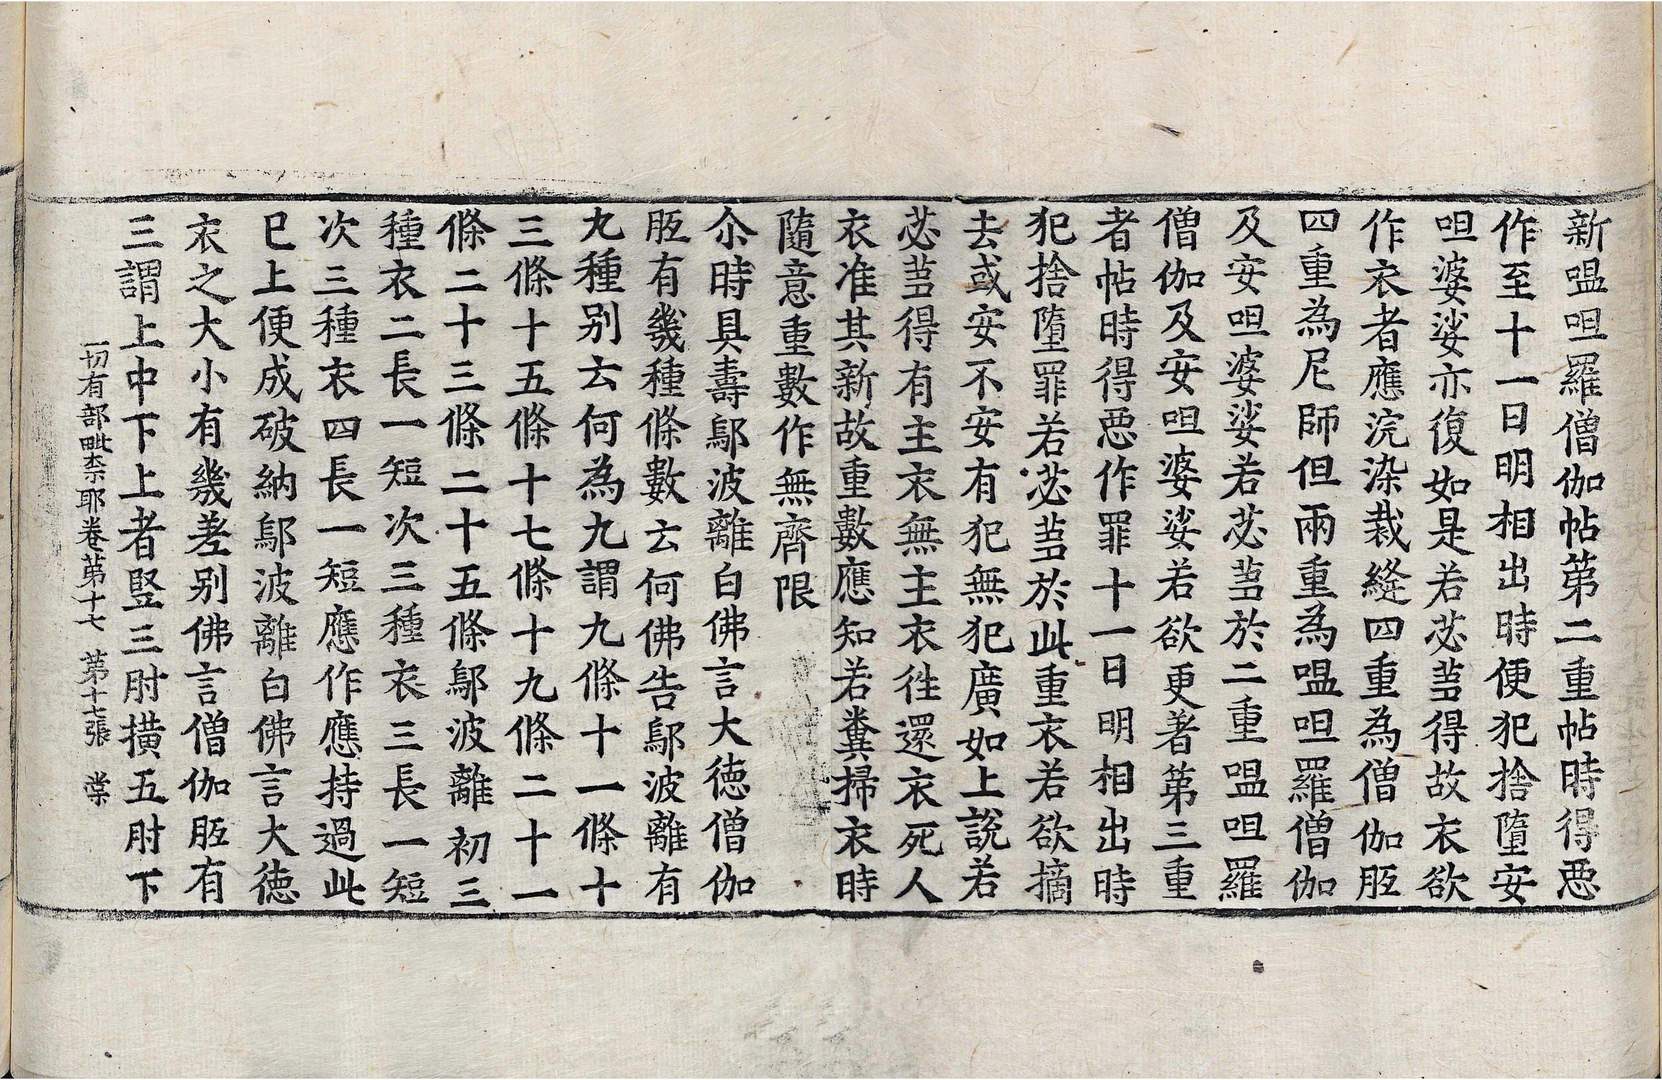 新嗢呾羅僧伽帖第二重帖時得悪
作至十一日明相出時便犯捨墮安
呾婆娑亦復如是若苾蒭得故衣欲
作衣者應浣染裁縫四重為僧伽胝
四重為尼師但兩重為嗢呾羅僧伽
及安呾婆娑若苾蒭於二重嗢呾羅
僧伽及安呾婆娑若欲更著第三重
者帖時得悪作罪十一日明相出時
犯捨墮罪若苾蒭於此重衣若欲摘
去或安不安有犯無犯廣如上說若
苾蒭得有主衣無主衣徃還衣死人
衣准其新故重數應知若糞掃衣時
隨意重數作無齊限
尒時具壽鄔波離白佛言大徳僧伽
胝有幾種條數云何佛告鄔波離有
九種别云何為九謂九條十一條十
三條十五條十七條十九條二十一
條二十三條二十五條鄔波離初三
種衣二長一短次三種衣三長一短
次三種衣四長一短應作應持過此
已上便成破納鄔波離白佛言大徳
衣之大小有幾差别佛言僧伽胝有
三謂上中下上者竪三肘撗五肘下
一切有部毗柰耶卷第十七 第十七張 棠